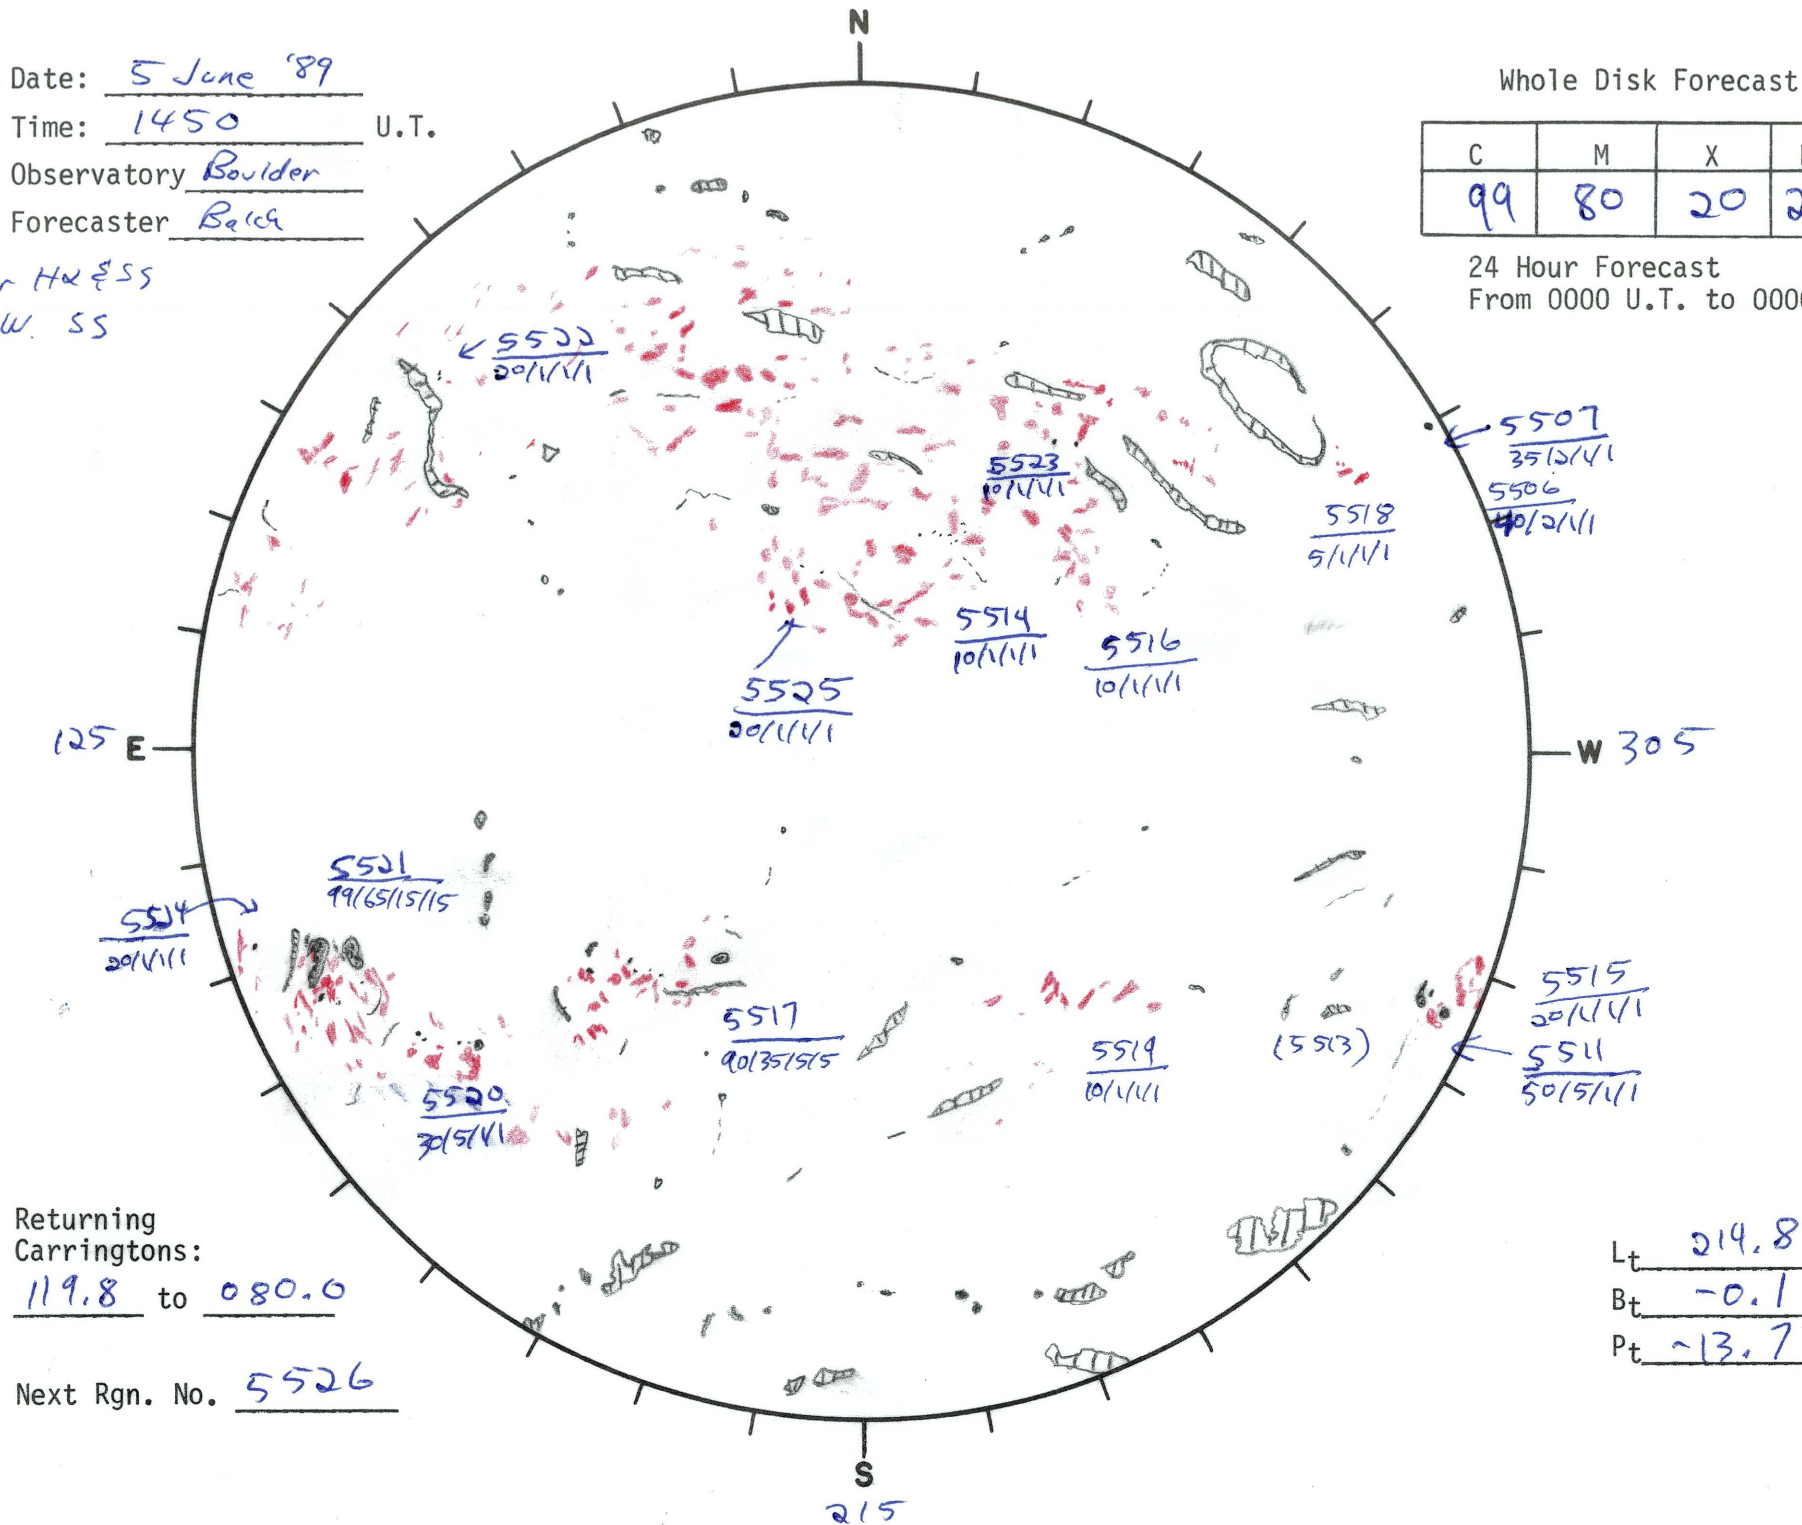 N
Date: 5 June '89
Time: 1450 U.T.
Observatory Boulder
Forecaster Balch
Hα & SS
W. SS
Whole Disk Forecast
C M X
99 80 20 2
24 Hour Forecast
From 0000 U.T. to 000
5522
20/1/1/1
5507
35/2/1/1
5523
10/1/1/1
5506
40/2/1/1
5518
5/1/1/1
5514
10/1/1/1
5516
10/1/1/1
5525
20/1/1/1
125 E
W 305
5521
99/65/15/15
5524
20/1/1/1
5515
20/1/1/1
5517
90/35/5/5
5519
10/1/1/1
(5513)
5511
50/5/1/1
5520
30/5/1/1
Returning
Carringtons:
119.8 to 080.0
Next Rgn. No. 5526
Lt 214.8
Bt -0.1
Pt -13.7
S
215